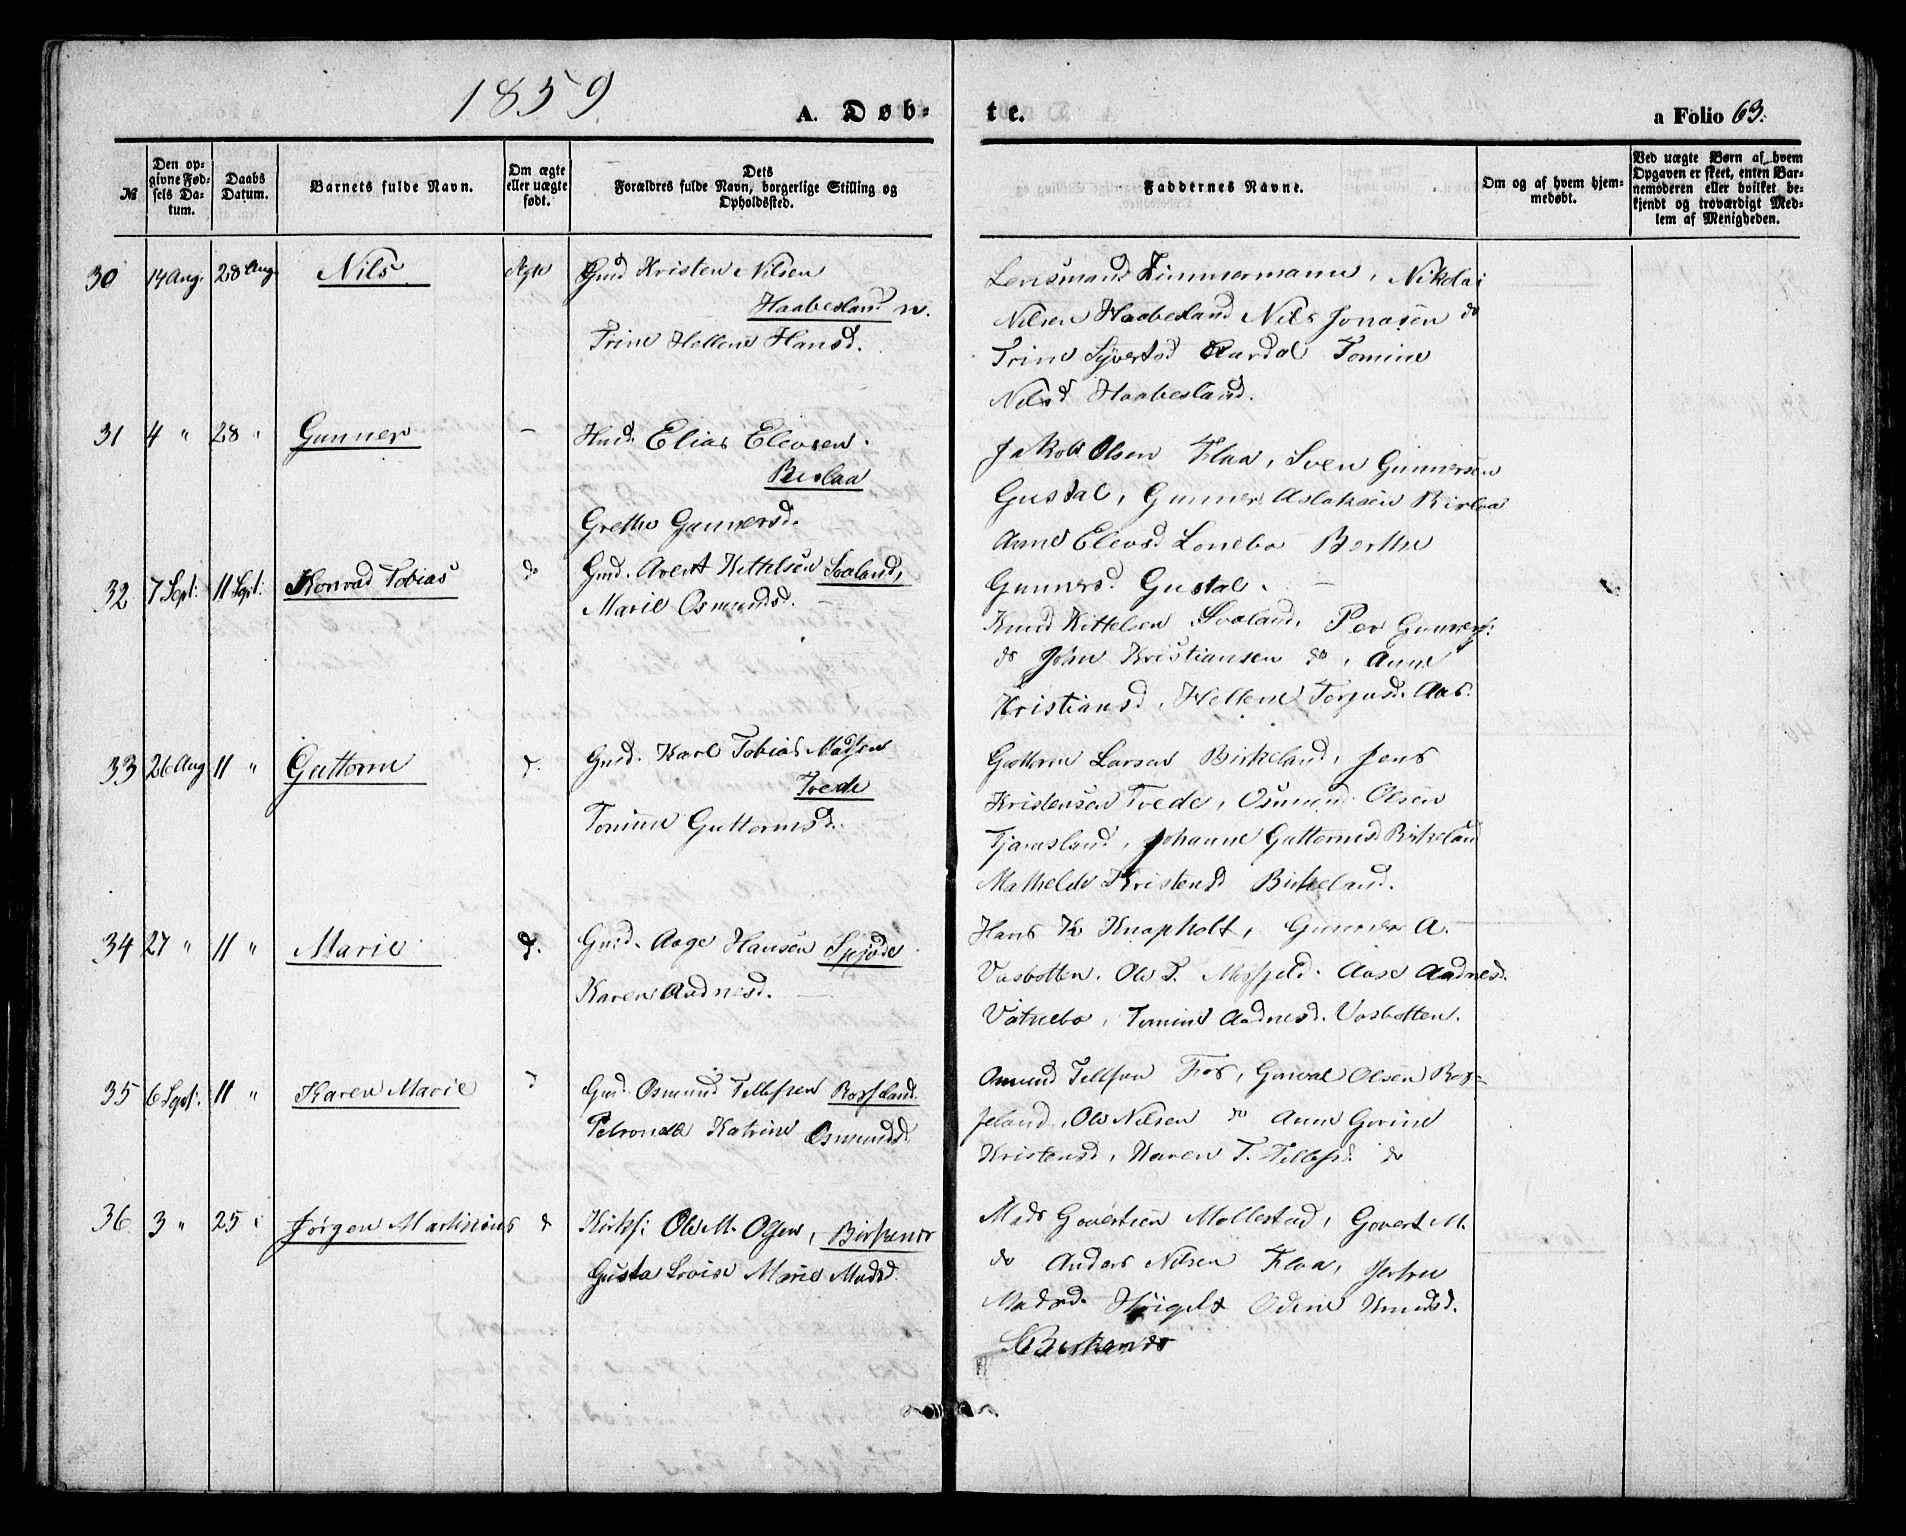 1859
A. Døb-
te.
a Folio 63.
№
Den op-
givne Fød-
sels Da-
tum.
Daabs
Datum.
Barnets fulde Navn.
Om ægte
eller uægte
født.
Dets
Forældres fulde Navn, borgerlige Stilling og
Opholdssted.
Faddernes Navne.
Om og af hvem hjem-
medøbt.
Ved uægte Børn af hvem
Opgaven er skeet, enten Bar-
nemoderen eller hvilket be-
kjendt og troværdigt Med-
lem af Menigheden.
30 14 Aug. 28 Aug. Nils Ægte Gmd Kristen Nilsen
Haabesland
Trine Hellene Hansd.
Lensmand Zimmermann, Nikolai
Nilsen Haabesland Nils Jonasen do
Trine Syvertsd Aardal Tomine
Nilsd Haabesland.
31 4 " 28 " Gunner — Hmd. Elias Elevsen
Beslaa
Grethe Gunnersd.
Jakob Olsen Flaa, Sven Gunnersen
Gustal, Gunner Aslaksen Birlaa
Anne Elevsd Lonebo Berthe
Gunnersd. Gustal. —
32 7 Sept: 11 Sept: Konrad Tobias do Gmd. Avert Kittelsen Sooland,
Marie Osmundsd. —
Knud Kittelsen Sooland, Per Gunners:
do John Kristiansen do, Anne
Kristiansd, Hellene Terjusd. Aas.
33 26 Aug 11 " Guttorm d. Gmd. Karl Tobias Madsen
Tvede
Tomine Guttormsd.
Guttorm Larsen Birkeland, Jens
Kristensen Tvede, Osmund Olsen
Tjaraslaud, Johanne Guttormsd Birkeland
Mathelde Kristensd Birkeland.
34 27 " 11 " Marie d. Gmd. Aage Hansen Spjode
Karen Aadnesd. —
Hans K Knapholt, Gunner A.
Vasbotten. Ole T. Mosfjeld. Aase Aadnesd.
Vatnebo, Tomine Aadnesd. Vasbotten.
35 6 Sept: 11 " Karen Marie d Gmd. Osmund Tellefsen Rosseland.
Petronelle Katrine Osmundsd.
Osmund Tellefsen Fos, Gunval Olsen Ros=
seland, Ole Nilsen do Anne Gorine
Kristensd, Karen T. Tellefsd. do
36 3 " 25 " Jørgen Martinius d Kirks: Ole M. Olsen, Birkenes
Gusta Lovise Marie Madsd.
Mads Govertsen Mollestad, Govert M.
do Anders Nilsen Flaa,
Madsd. Høigilt Odine Knudsd.
Birkenes